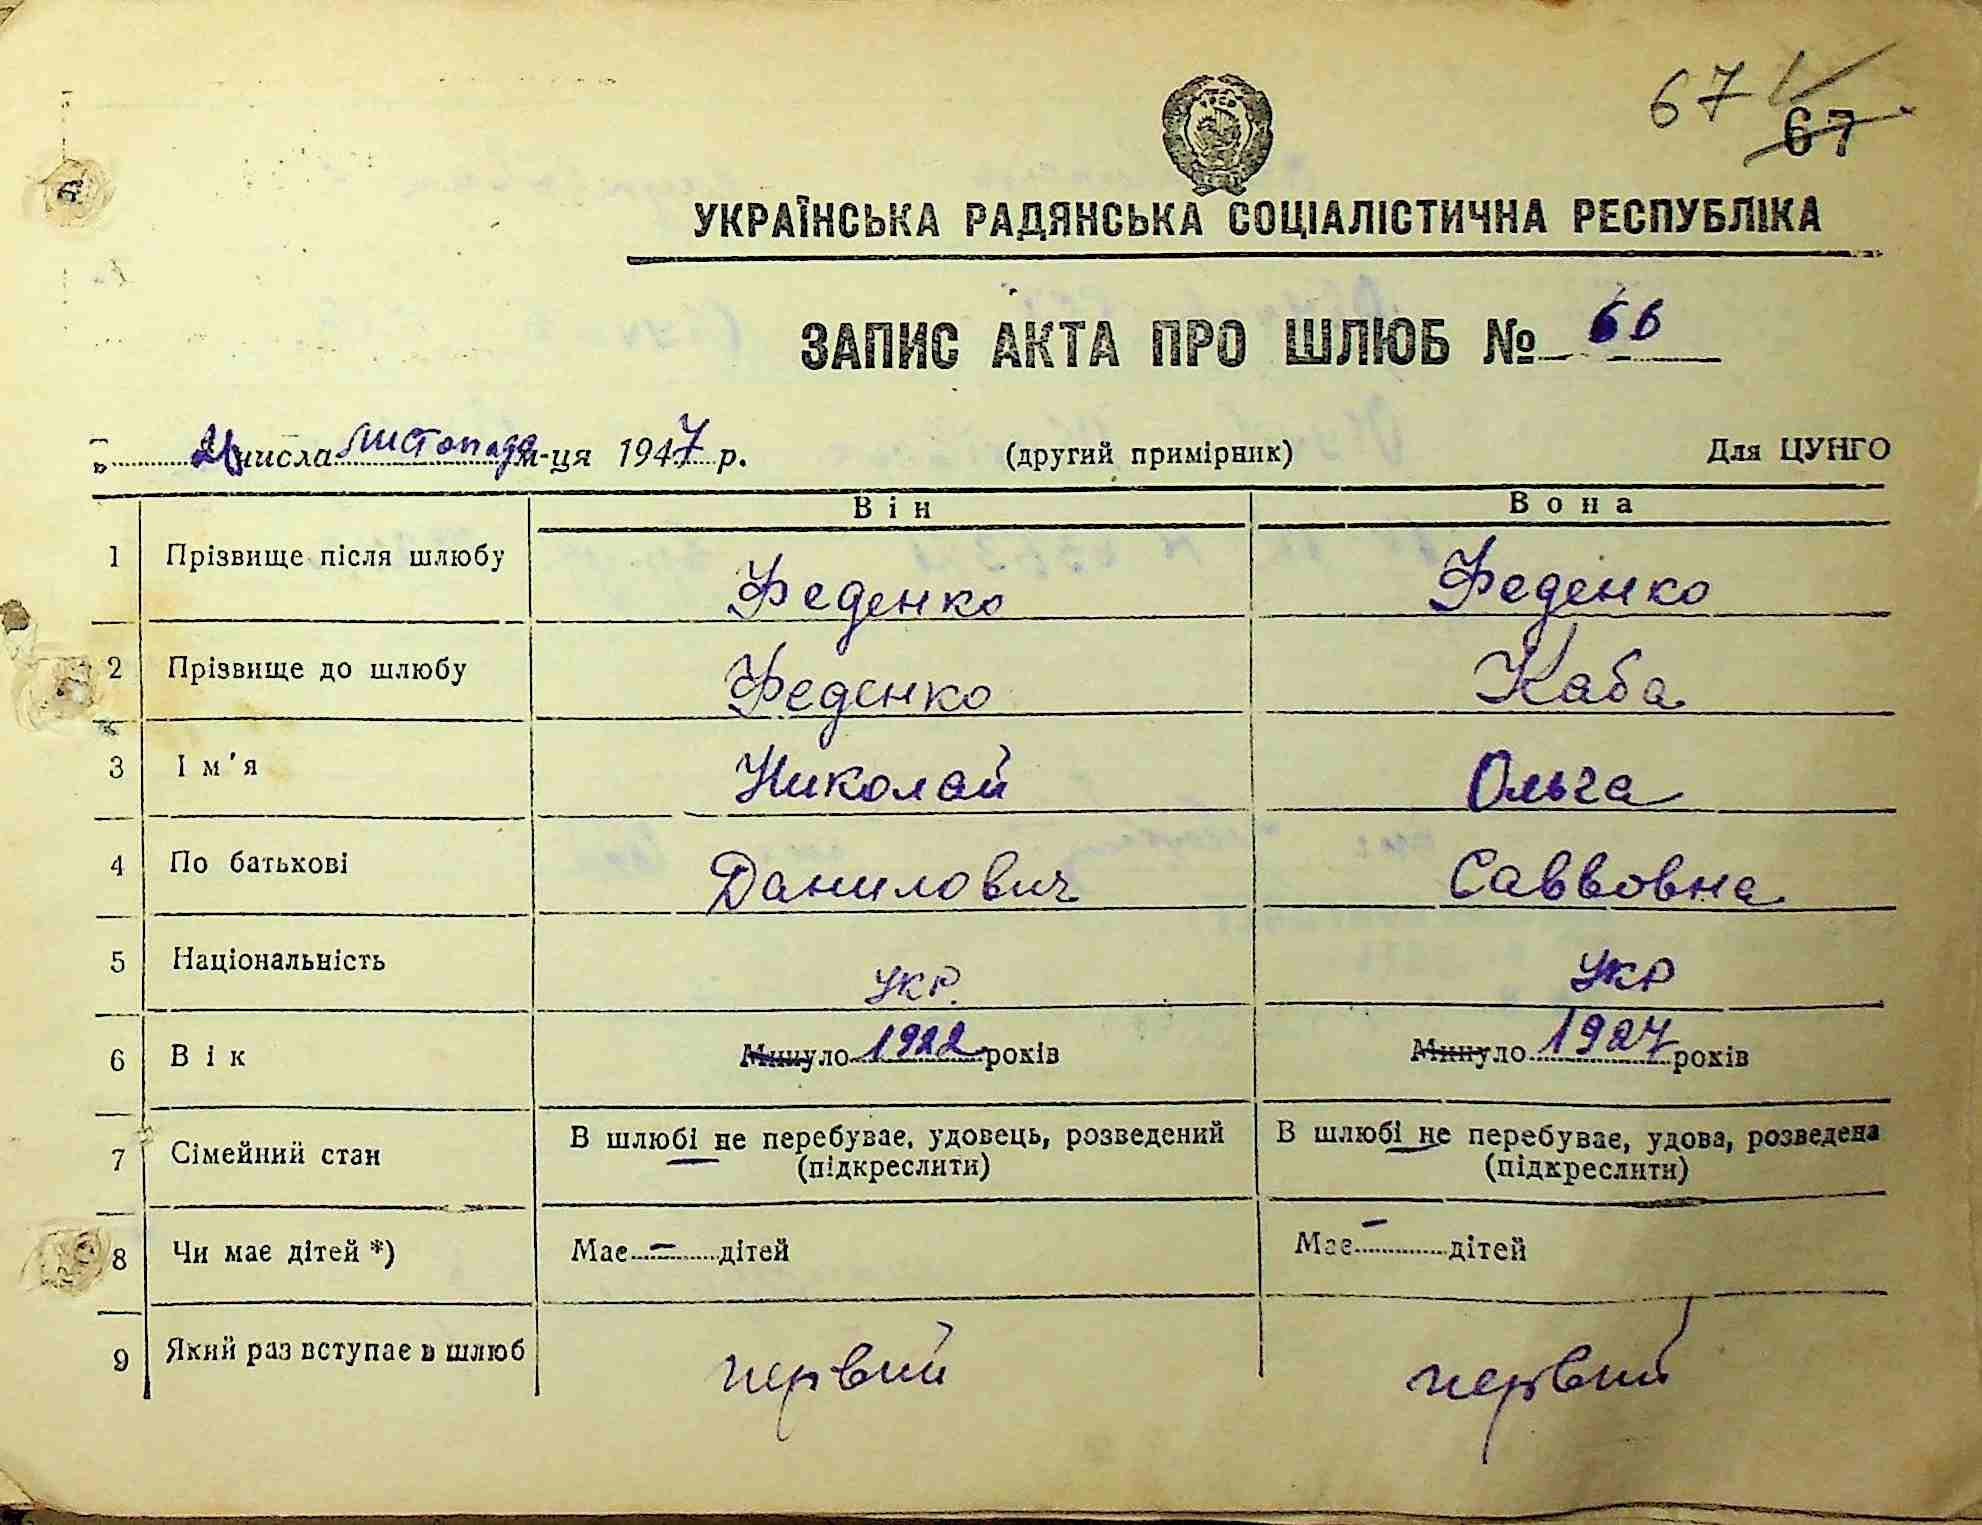 67
67
УКРАЇНСЬКА РАДЯНСЬКА СОЦІАЛІСТИЧНА РЕСПУБЛІКА
ЗАПИС АКТА ПРО ШЛЮБ № 66
„ числа листопада м-ця 1947 р. (другий примірник) Для ЦУНГО
Він Вона
1 Прізвище після шлюбу Феденко Феденко
2 Прізвище до шлюбу Феденко Каба
3 Ім'я Николай Ольга
4 По батькові Данилович Саввовна
5 Національність укр. укр
6 Вік Минуло 1922 років Минуло 1927 років
7 Сімейний стан В шлюбі не перебуває, удовець, розведений В шлюбі не перебуває, удова, розведена
(підкреслити) (підкреслити)
8 Чи має дітей *) Має – дітей Має – дітей
9 Який раз вступає в шлюб первий первий